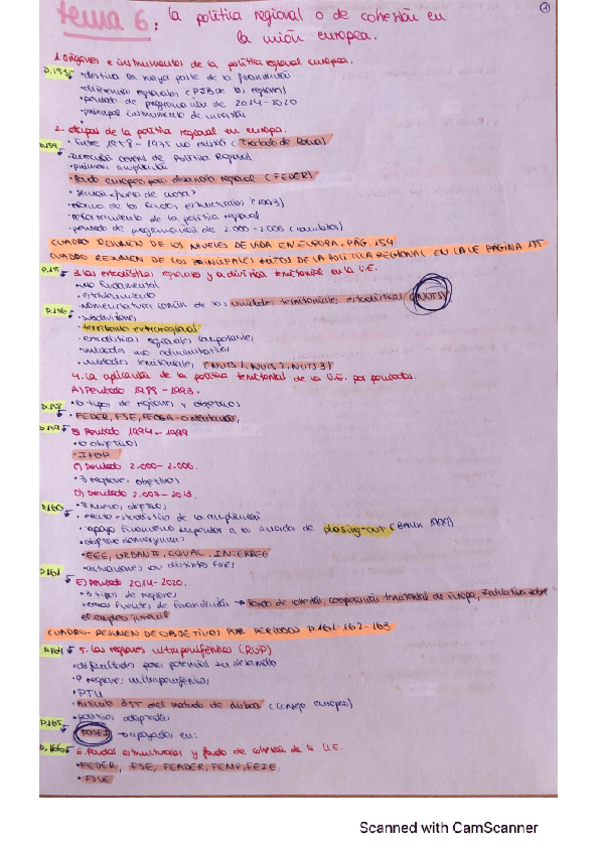 tema 6: la política regional o de cohesión en
la unión europea.
1. orígenes e instrumentos de la política regional europea.
• destina la mayor parte de la financiación
• diferencias regionales (PIB de las regiones)
• periodo de programación de 2014-2020
• principal instrumento de inversión
2. etapas de la política regional en europa.
• Entre 1958-1975 no existió (Tratado de Roma)
• Dirección General de Política Regional
• primera ampliación
• fondo europeo para desarrollo regional (FEDER)
• sección fuera de cuotas
• reforma de los fondos estructurales (1993)
• reforzamiento de la política regional
• periodo de programación de 2.000-2.006
CUADRO RESUMEN DE LOS NIVELES DE VIDA EN EUROPA. PÁG. 154
CUADRO RESUMEN DE LOS PRINCIPALES HITOS DE LA POLITICA REGIONAL EN LA UE PAGINA 155
3. las estadísticas regionales y la división territorial en la U.E.
• uso fundamental
• establecimiento
• nomenclatura común de las unidades territoriales estadísticas (NUTS)
P.156
• subdivisiones
• territorio extrarregional
• estadísticas regionales
• unidades no administrativas
• unidades territoriales (NUTS 1, NUTS 2, NUTS 3)
4. La aplicación de la política territorial de la U.E. por periodos.
A) Periodo 1988-1993.
• tipos de regiones y objetivos
• FEDER, FSE, FEOGA-Orientación
B) Periodo 1994-1999
• objetivos
• IFOP
C) Periodo 2.000-2.006.
• 3 regiones, objetivos
D) Periodo 2.007-2013.
P.160
• 3 nuevos objetivos
• efecto estadístico de la ampliación
• apoyo financiero transitorio a las ayudas de phasing-out
• objetivo convergencia
• URBAN II, EQUAL, INTERREG
• actuaciones en distintos fines
P.161
E) Periodo 2014-2020.
• 3 tipos de regiones
• otras fuentes de financiación → fondo de cohesión, cooperación territorial de Europa, iniciativa sobre
el empleo juvenil
CUADRO-RESUMEN DE OBJETIVOS POR PERIODOS P.161-162-163
5. las regiones ultraperiféricas (RUP)
• dificultades para potenciar su desarrollo
• 9 regiones ultraperiféricas
• PTU
• Artículo 355 del tratado de Lisboa (Consejo europeo)
• políticas adaptadas
P.165
POSEI → apoyados en:
6. fondos estructurales y fondo de cohesión de la U.E.
• FEDER, FSE, FEADER, FEMP,
• FSUE
Scanned with CamScanner